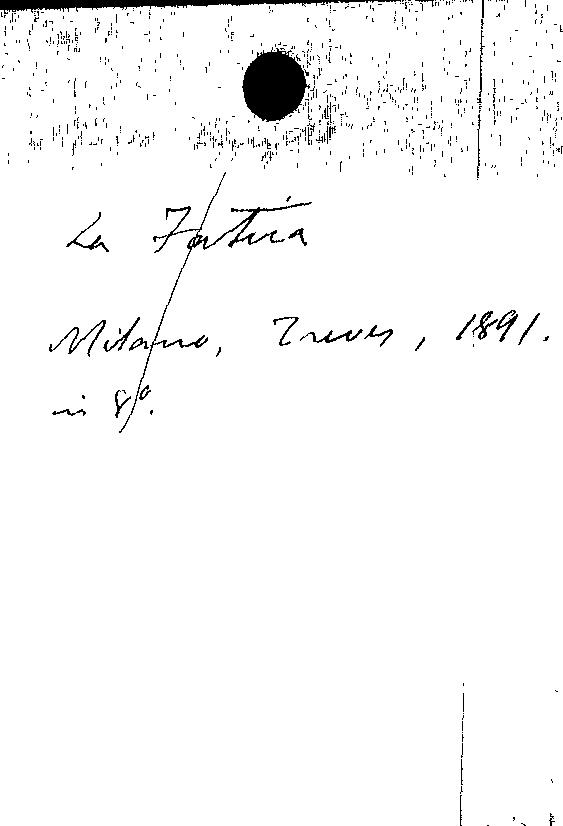 La Fatica
Milano, Treves, 1891.
in 8º.